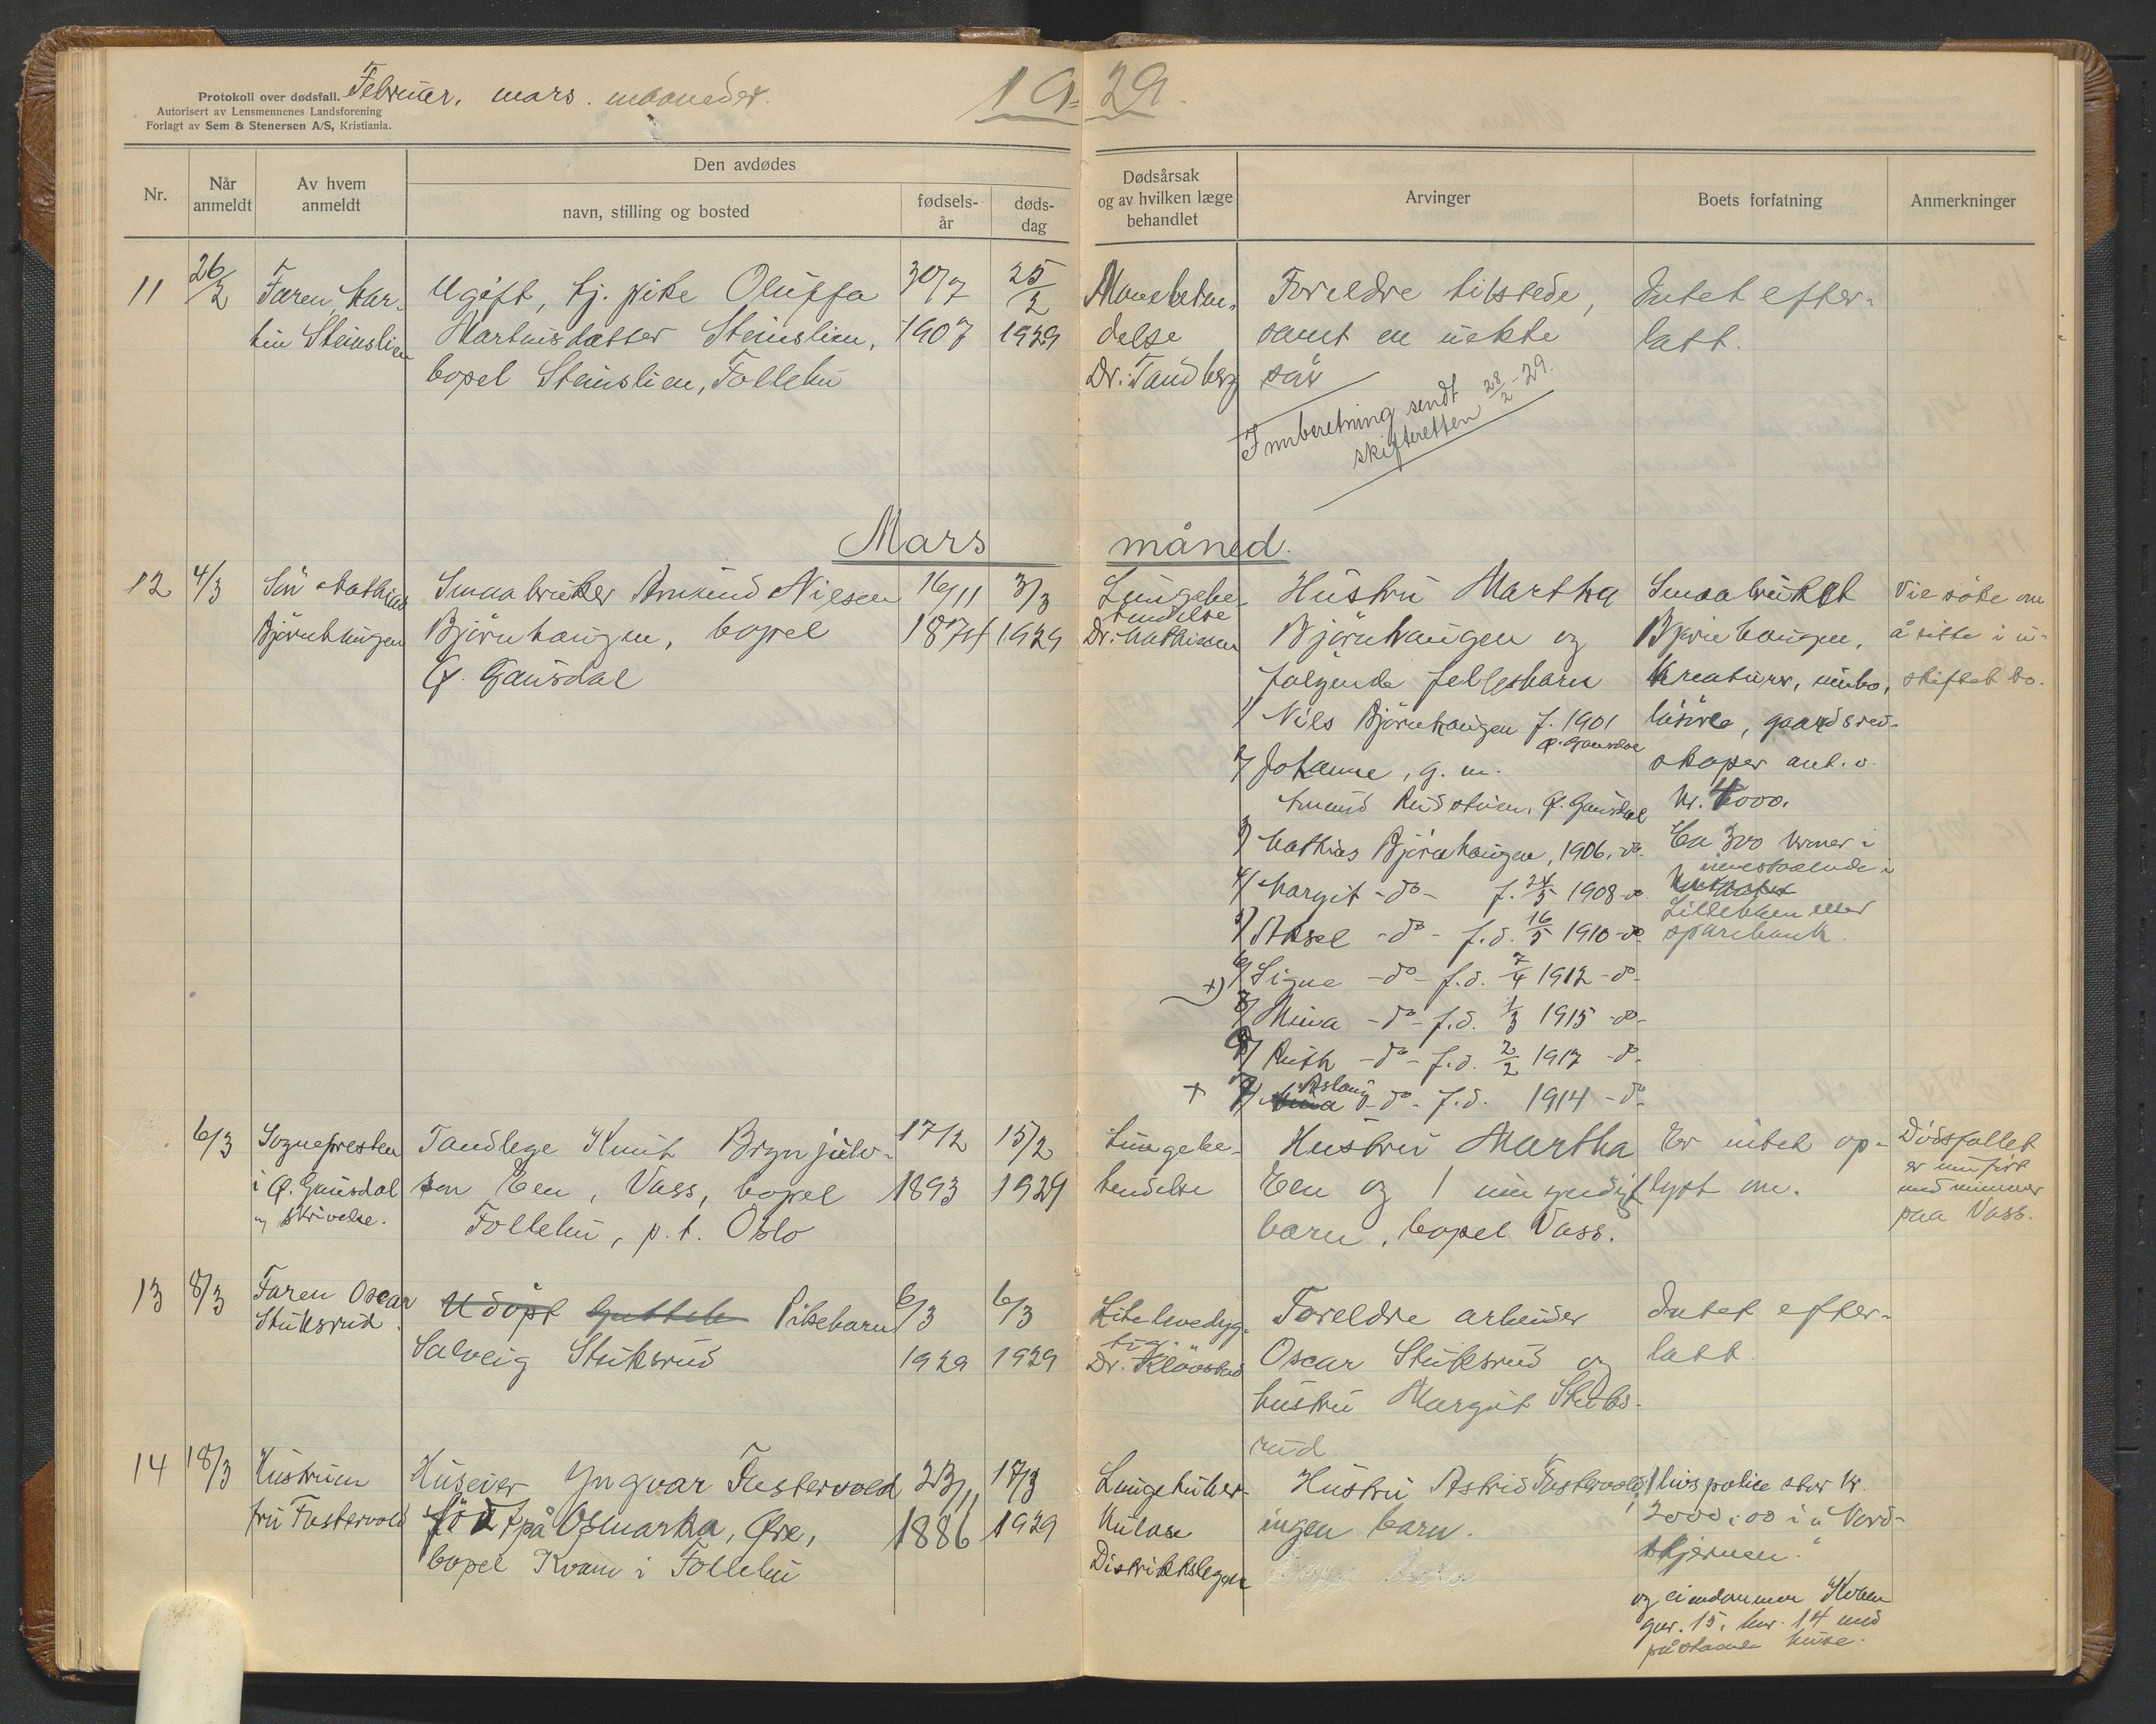 Protokoll over dødsfall. Februar, mars. maaneder. 19 29.
Autorisert av Lensmennenes Landsforening
Forlagt av Sem & Stenersen A/S, Kristiania.
Nr.
Når anmeldt
Av hvem anmeldt
Den avdødes
navn, stilling og bosted
fødsels-år
døds-dag
Dødsårsak og av hvilken læge behandlet
Arvinger
Boets forfatning
Anmerkninger
11 26/2
Faren, Mar-
tin Steinslien
Ugift, tj. pike Oluffa
Martinsdatter Steinslien,
bopel Steinslien, Follebu
30/7
1907
25/2
1929
delse
Dr. Tandberg
Foreldre tilstede,
samt en uekte
søn
Intet efter-
latt.
Innberetning sendt
skifteretten 28/2-29.
Mars måned.
12 4/3
Søn Mathias
Bjørnhaugen
Smaabruker Amund Nilsen
Bjørnhaugen, bopel
Ø. Gausdal
16/11
1874
3/3
1929
Lungebe-
tendelse
Dr. Mathiesen
Hustru Martha
Bjørnhaugen og
følgende fellesbarn
1/ Nils Bjørnhaugen f. 1901
Ø. Gausdal
2/ Johanne, g. m.
Amund Rudstuen, Ø. Gausdal
3/ Mathias Bjørnhaugen, 1906. do.
4/ Margit -do- f. 24/5 1908 do
5/ Aksel -do- f.d. 16/5 1910 -do-
+) 6/ Signe -do- f.d. 7/4 1912 -do-
8/ Mina -do- f.d. 1/3 1915 -do-
9/ Ruth -do- f.d. 2/2 1917 -do-
+ 7/ Aslaug -do- f.d. 1914 -do-
Smaabruket
Bjørnhaugen,
kreaturer, innbo,
løsøre, gaardsred-
skaper ant. v.
kr. 4000.
Ca 300 kroner i
innestaaende i
sparebank.
Vil søke om
å sitte i u-
skiftet bo.
6/3
Sognepresten
i Ø. Gausdal
skrivelse.
Tandlege Knut Brynjulv-
sen Een, Vass, bopel
Follebu, p.t. Oslo
17/2
1893
15/2
1929
Lungebe-
tendelse
Hustru Martha
Een og 1 umyndig
barn, bopel Vass.
Er intet op-
lyst om.
Dødsfallet
er innført
med nummer
paa Vass.
13 8/3
Faren Oscar
Stuksrud.
Udøpt Guttebarn Pikebarn
Solveig Stuksrud
6/3
1929
6/3
1929
Lite levedyg-
tig.
Dr. Kløvstad
Foreldre arbeider
Oscar Stuksrud og
hustru Margit Stuks-
rud.
Intet efter-
latt.
14 18/3
Hustruen
fru Fustervold
Huseier Yngvar Fustervold
født på Osmarka, Øre,
bopel Kvam i Follebu
23/11
1886
17/3
1929
Lungetuber-
kulose
Distriktslegen
Hustru Astrid Fustervold,
ingen barn.
1 livspolice stor kr.
2000.00 i "Nord-
stjernen."
og eiendommen Kvam
gnr. 15, bnr. 14 med
påstaaende huse.